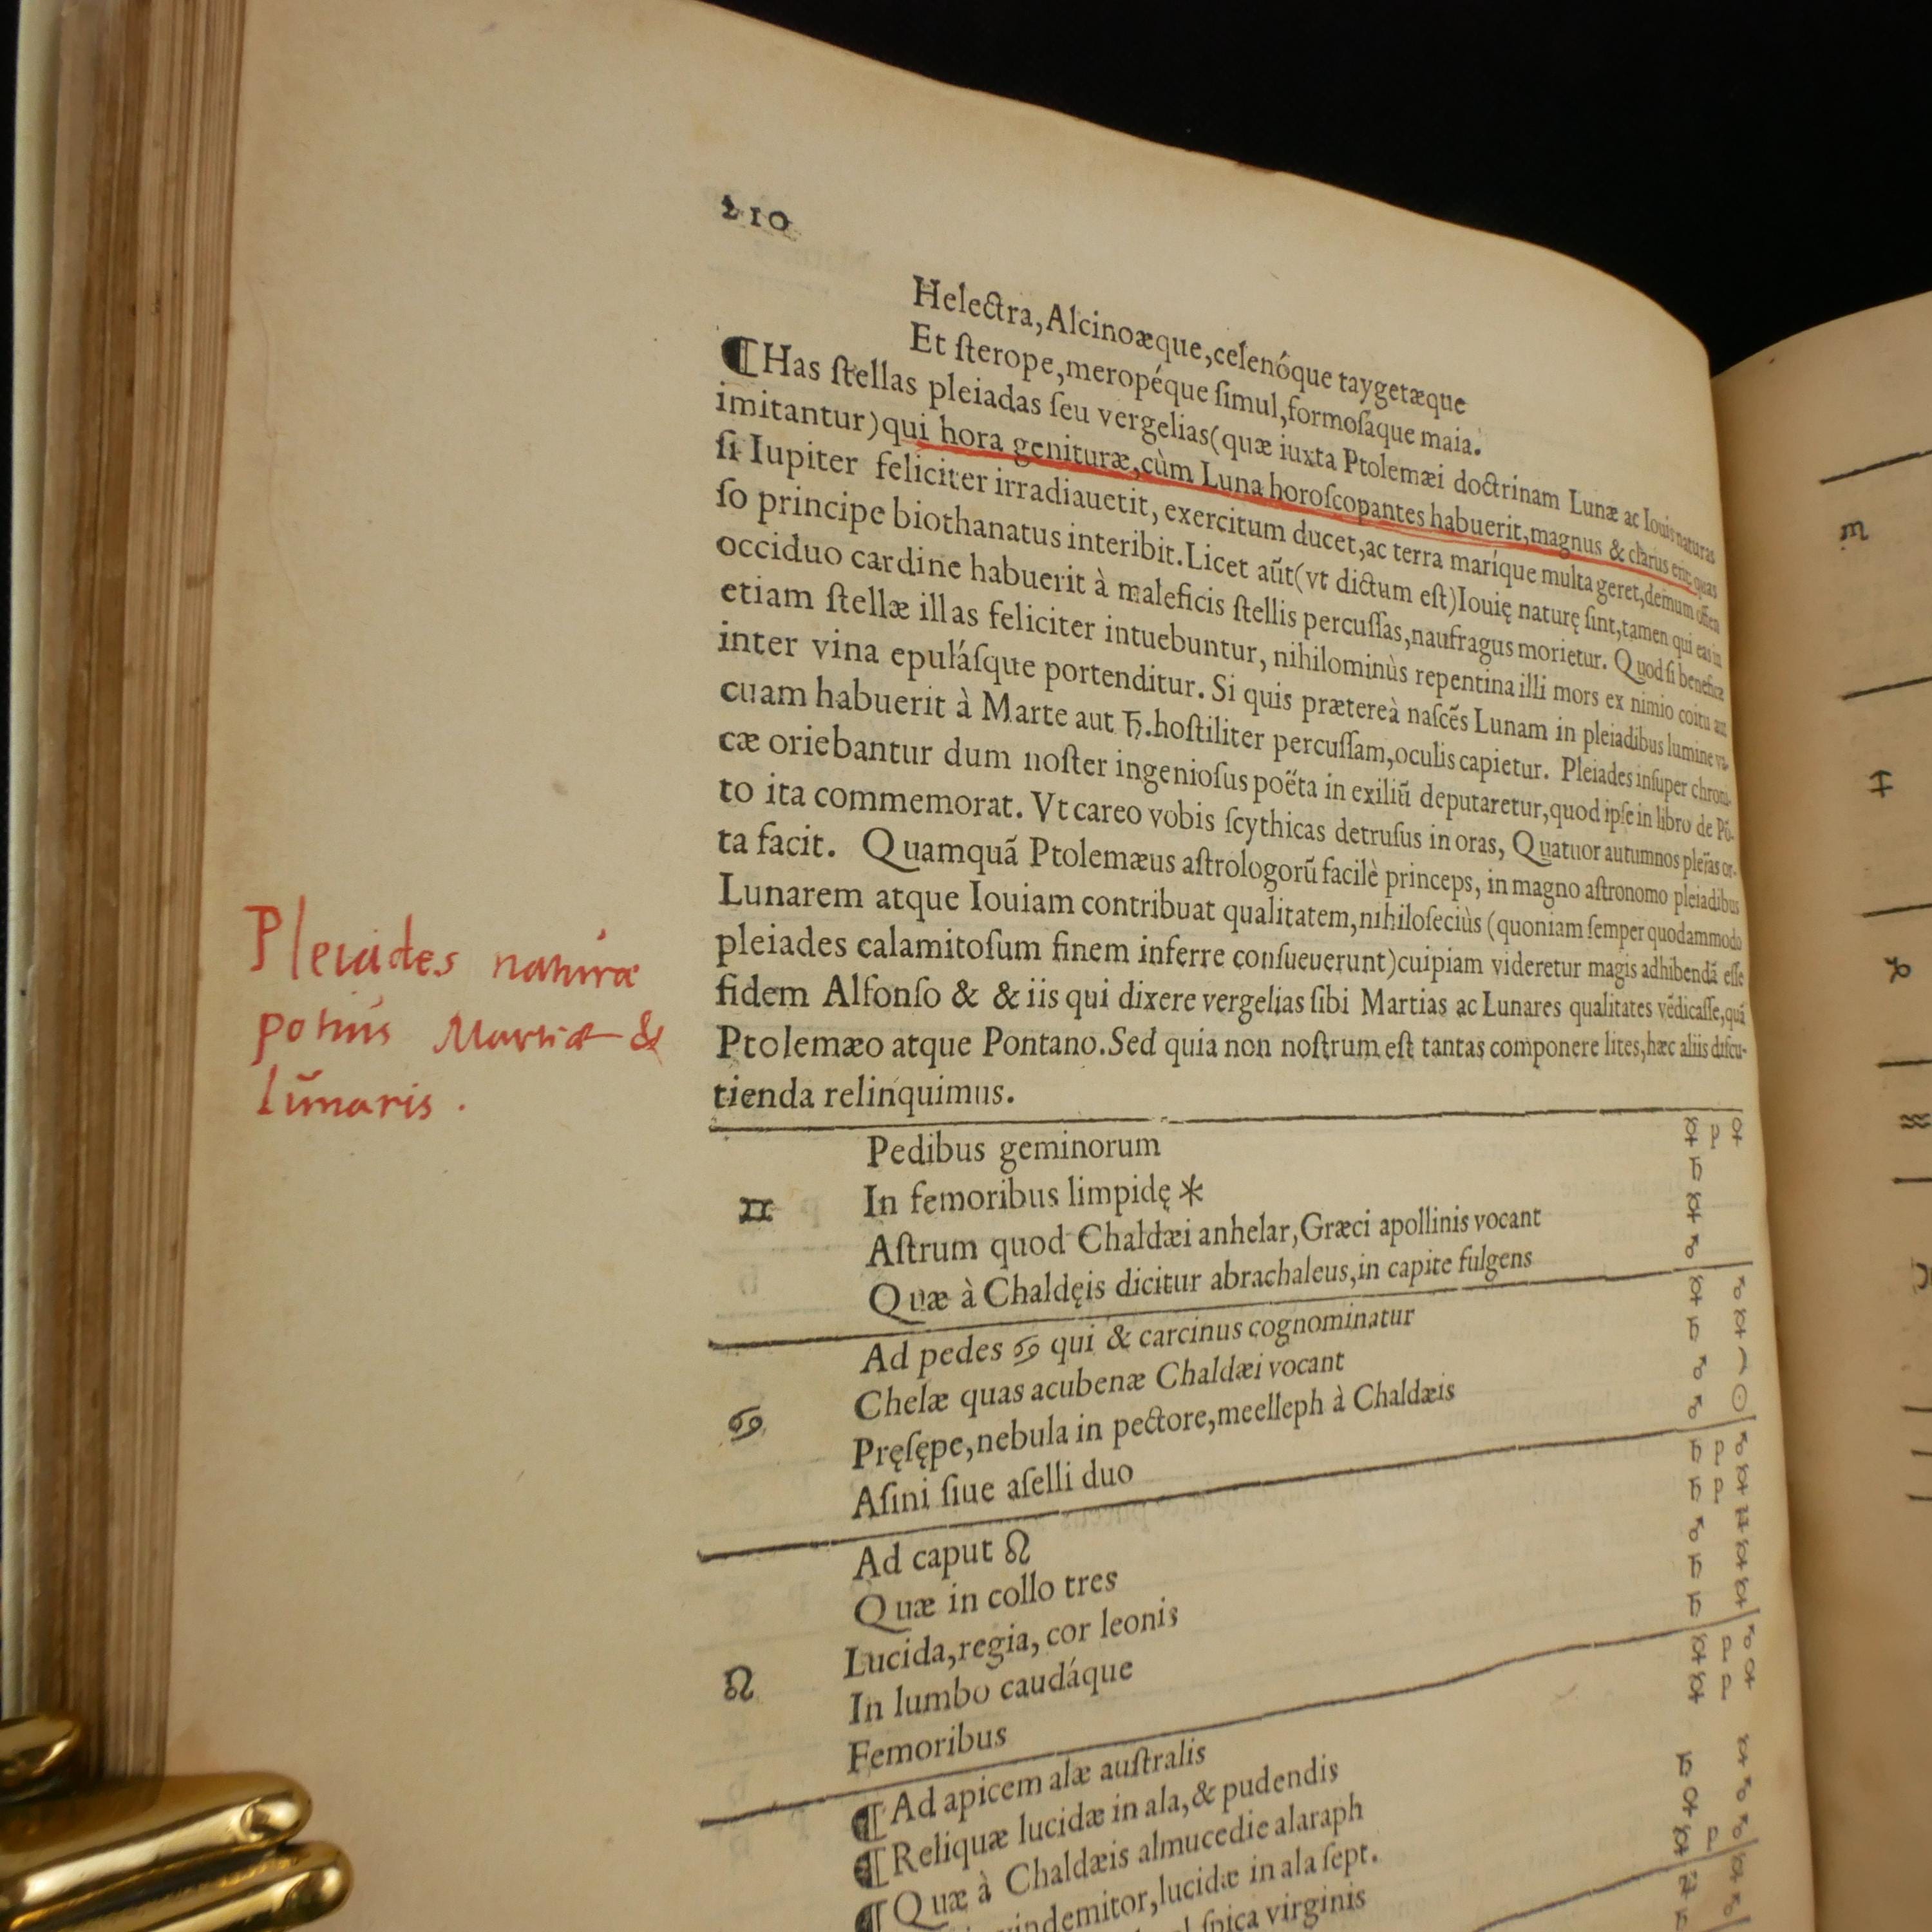 210
Helectra, Alcinoæque, celenóque taygetæque
Et ſterope, meropéque ſimul, formoſáque maia.
¶ Has ſtellas pleiadas ſeu vergelias (quæ iuxta Ptolemæi doctrinam Lunæ ac Iouis naturas
imitantur) qui hora genituræ, cùm Luna horoſcopantes habuerit, magnus & clarus erit, quas
ſi Iupiter feliciter irradiauetit, exercitum ducet, ac terra maríque multa geret, demum offen
ſo principe biothanatus interibit. Licet aūt (vt dictum eſt) Iouię naturę ſint, tamen qui eas in
occiduo cardine habuerit à maleficis ſtellis percuſſas, naufragus morietur. Quod ſi beneficæ
etiam ſtellæ illas feliciter intuebuntur, nihilominùs repentina illi mors ex nimio coitu aut
inter vina epuláſque portenditur. Si quis prætereà naſcēs Lunam in pleiadibus lumine va-
cuam habuerit à Marte aut ♄. hoſtiliter percuſſam, oculis capietur. Pleiades inſuper chroni-
cæ oriebantur dum noſter ingenioſus poëta in exiliū deputaretur, quod ipſe in libro de Pō-
to ita commemorat. Vt careo vobis ſcythicas detruſus in oras, Quatuor autumnos pleïas or-
ta facit. Quamquā Ptolemæus aſtrologorū facilè princeps, in magno aſtronomo pleiadibus
Lunarem atque Iouiam contribuat qualitatem, nihiloſeciùs (quoniam ſemper quodammodo
pleiades calamitoſum finem inferre conſueuerunt) cuipiam videretur magis adhibendā eſſe
fidem Alfonſo & & iis qui dixere vergelias ſibi Martias ac Lunares qualitates vēdicaſſe, quā
Ptolemæo atque Pontano. Sed quia non noſtrum eſt tantas componere lites, hæc aliis diſcu-
tienda relinquimus.
Pleiades naturæ
potius Martiæ &
lunaris.
Pedibus geminorum ☿ p ♀
♊ In femoribus limpidę * ♄
Aſtrum quod Chaldæi anhelar, Græci apollinis vocant ☿
Quæ à Chaldęis dicitur abrachaleus, in capite fulgens ♂
Ad pedes ♋ qui & carcinus cognominatur ☿ ♂
♋ Chelæ quas acubenæ Chaldæi vocant ♄ ☿
Pręſępe, nebula in pectore, meelleph à Chaldæis ♂
Aſini ſiue aſelli duo ♂ ☉
Ad caput ♌ ♄ p ♂
Quæ in collo tres ♄ p ☿
♌ Lucida, regia, cor leonis ♂ ♃
In lumbo caudáque ♄
Femoribus ♄
¶ Ad apicem alæ auſtralis ☿ p ♂
¶ Reliquæ lucidæ in ala, & pudendis ☿ p ♀
¶ Quæ à Chaldæis almucedie alaraph
vindemitor, lucidæ in ala ſept.
ſpica virginis
♏
♐